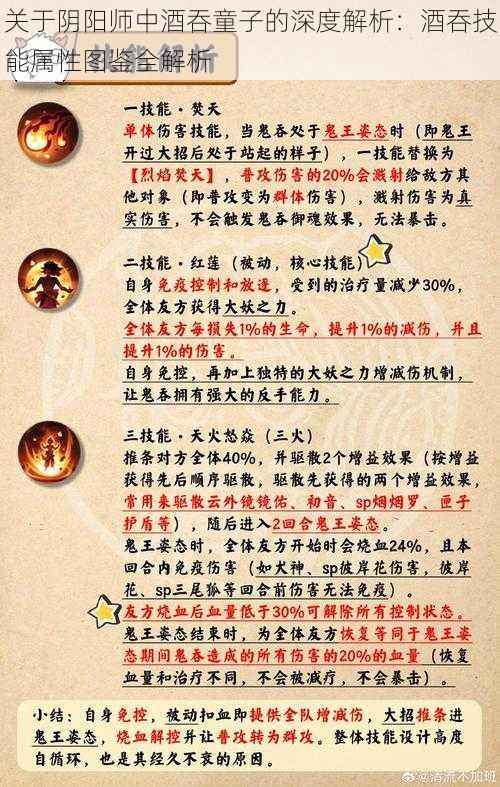 关于阴阳师中酒吞童子的深度解析：酒吞技
能属性图鉴全解析
技能解析
一技能·焚天
单体伤害技能，当鬼吞处于鬼王姿态时（即鬼王
开过大招后处于站起的样子），一技能替换为
【烈焰焚天】，普攻伤害的20%会溅射给敌方其
他对象（即普攻变为群体伤害），溅射伤害为真
实伤害，不会触发鬼吞御魂效果，无法暴击。
二技能·红莲（被动，核心技能）
自身免疫控制和放逐，受到的治疗量减少30%，
全体友方获得大妖之力。
全体友方每损失1%的生命，提升1%的减伤，并且
提升1%的伤害。
自身免控，再加上独特的大妖之力增减伤机制，
让鬼吞拥有强大的反手能力。
三技能·天火愁焱（三火）
推条对方全体40%，并驱散2个增益效果（按增益
获得先后顺序驱散，驱散先获得的两个增益效果，
常用来驱散云外镜镜佑、初音、sp烟烟罗、匣子
护盾等），随后进入2回合鬼王姿态。
鬼王姿态时，全体友方开始时会烧血24%，且本
回合内免疫伤害（如犬神、sp彼岸花伤害，彼岸
花、sp三尾狐等回合前伤害无法免疫）。
友方烧血后血量低于30%可解除所有控制状态。
鬼王姿态结束时，为全体友方恢复等同于鬼王姿
态期间鬼吞造成的所有伤害的20%的血量（恢复
血量和治疗不同，不会被减疗，不会暴击）。
小结：自身免控，被动扣血即提供全队增减伤，大招推条进
鬼王姿态，烧血解控并让普攻转为群攻。整体技能设计高度
自循环，也是其经久不衰的原因。
@清流不加班